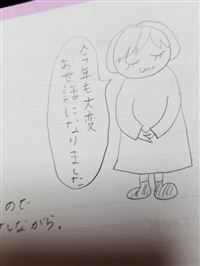 今年も大変
お世話になりました
ので
しながら。